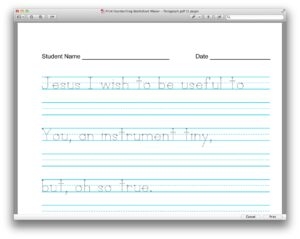 Print Handwriting Worksheet Maker - Paragraph.pdf (1 page)
Student Name
Date
Jesus I wish to be useful to
You, an instrument tiny,
but, oh so true.
Cancel Print